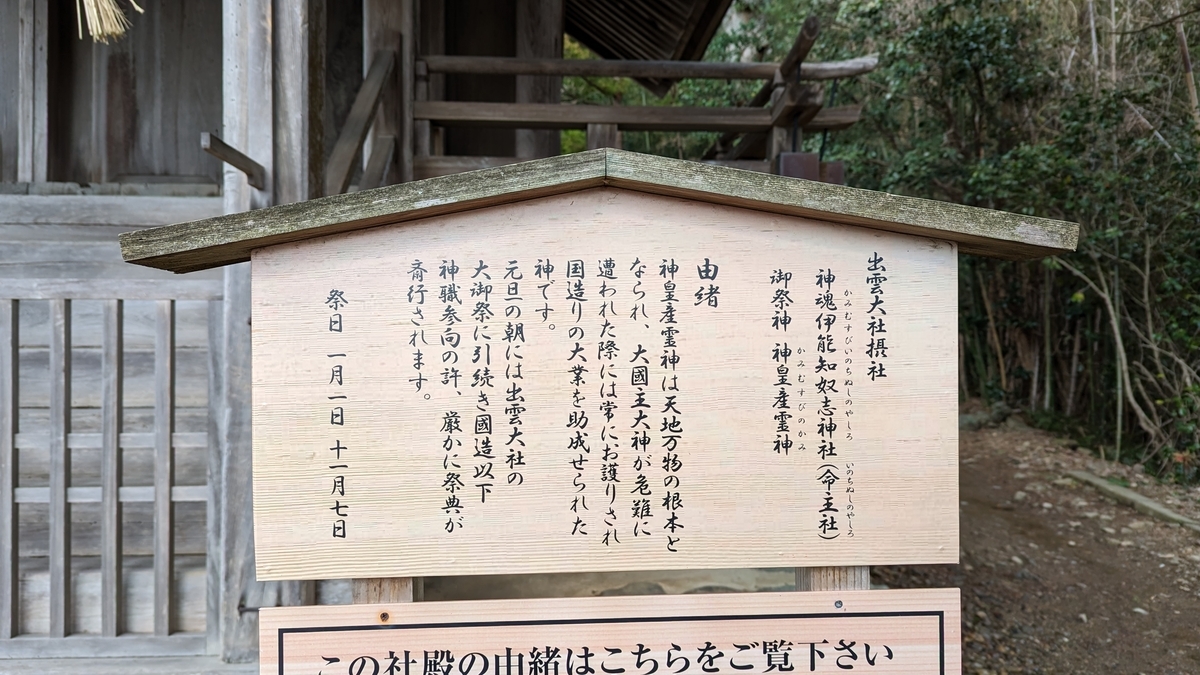 出雲大社摂社
かみむすびいのちぬしのやしろ
いのちぬしのやしろ
神魂伊能知奴志神社(命主社)
かみむすびのかみ
御祭神 神皇産霊神
由緒
神皇産霊神は天地万物の根本と
なられ、大國主大神が危難に
遭われた際には常にお護りされ
国造りの大業を助成せられた
神です。
元旦の朝には出雲大社の
大御祭に引続き國造以下
神職参向の許、厳かに祭典が
斎行されます。
祭日 一月一日 十一月七日
この社殿の由緒はこちらをご覧下さい